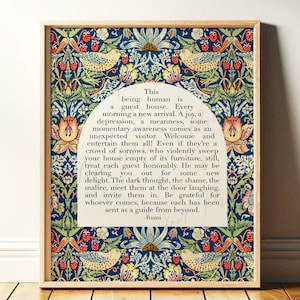 This
being human is
a guest house. Every
morning a new arrival. A joy, a
depression, a meanness, some
momentary awareness comes as an
unexpected visitor. Welcome and
entertain them all! Even if they're a
crowd of sorrows, who violently sweep
your house empty of its furniture, still,
treat each guest honorably. He may be
clearing you out for some new
delight. The dark thought, the shame, the
malice, meet them at the door laughing,
and invite them in. Be grateful for
whoever comes, because each has been
sent as a guide from beyond.
-Rumi